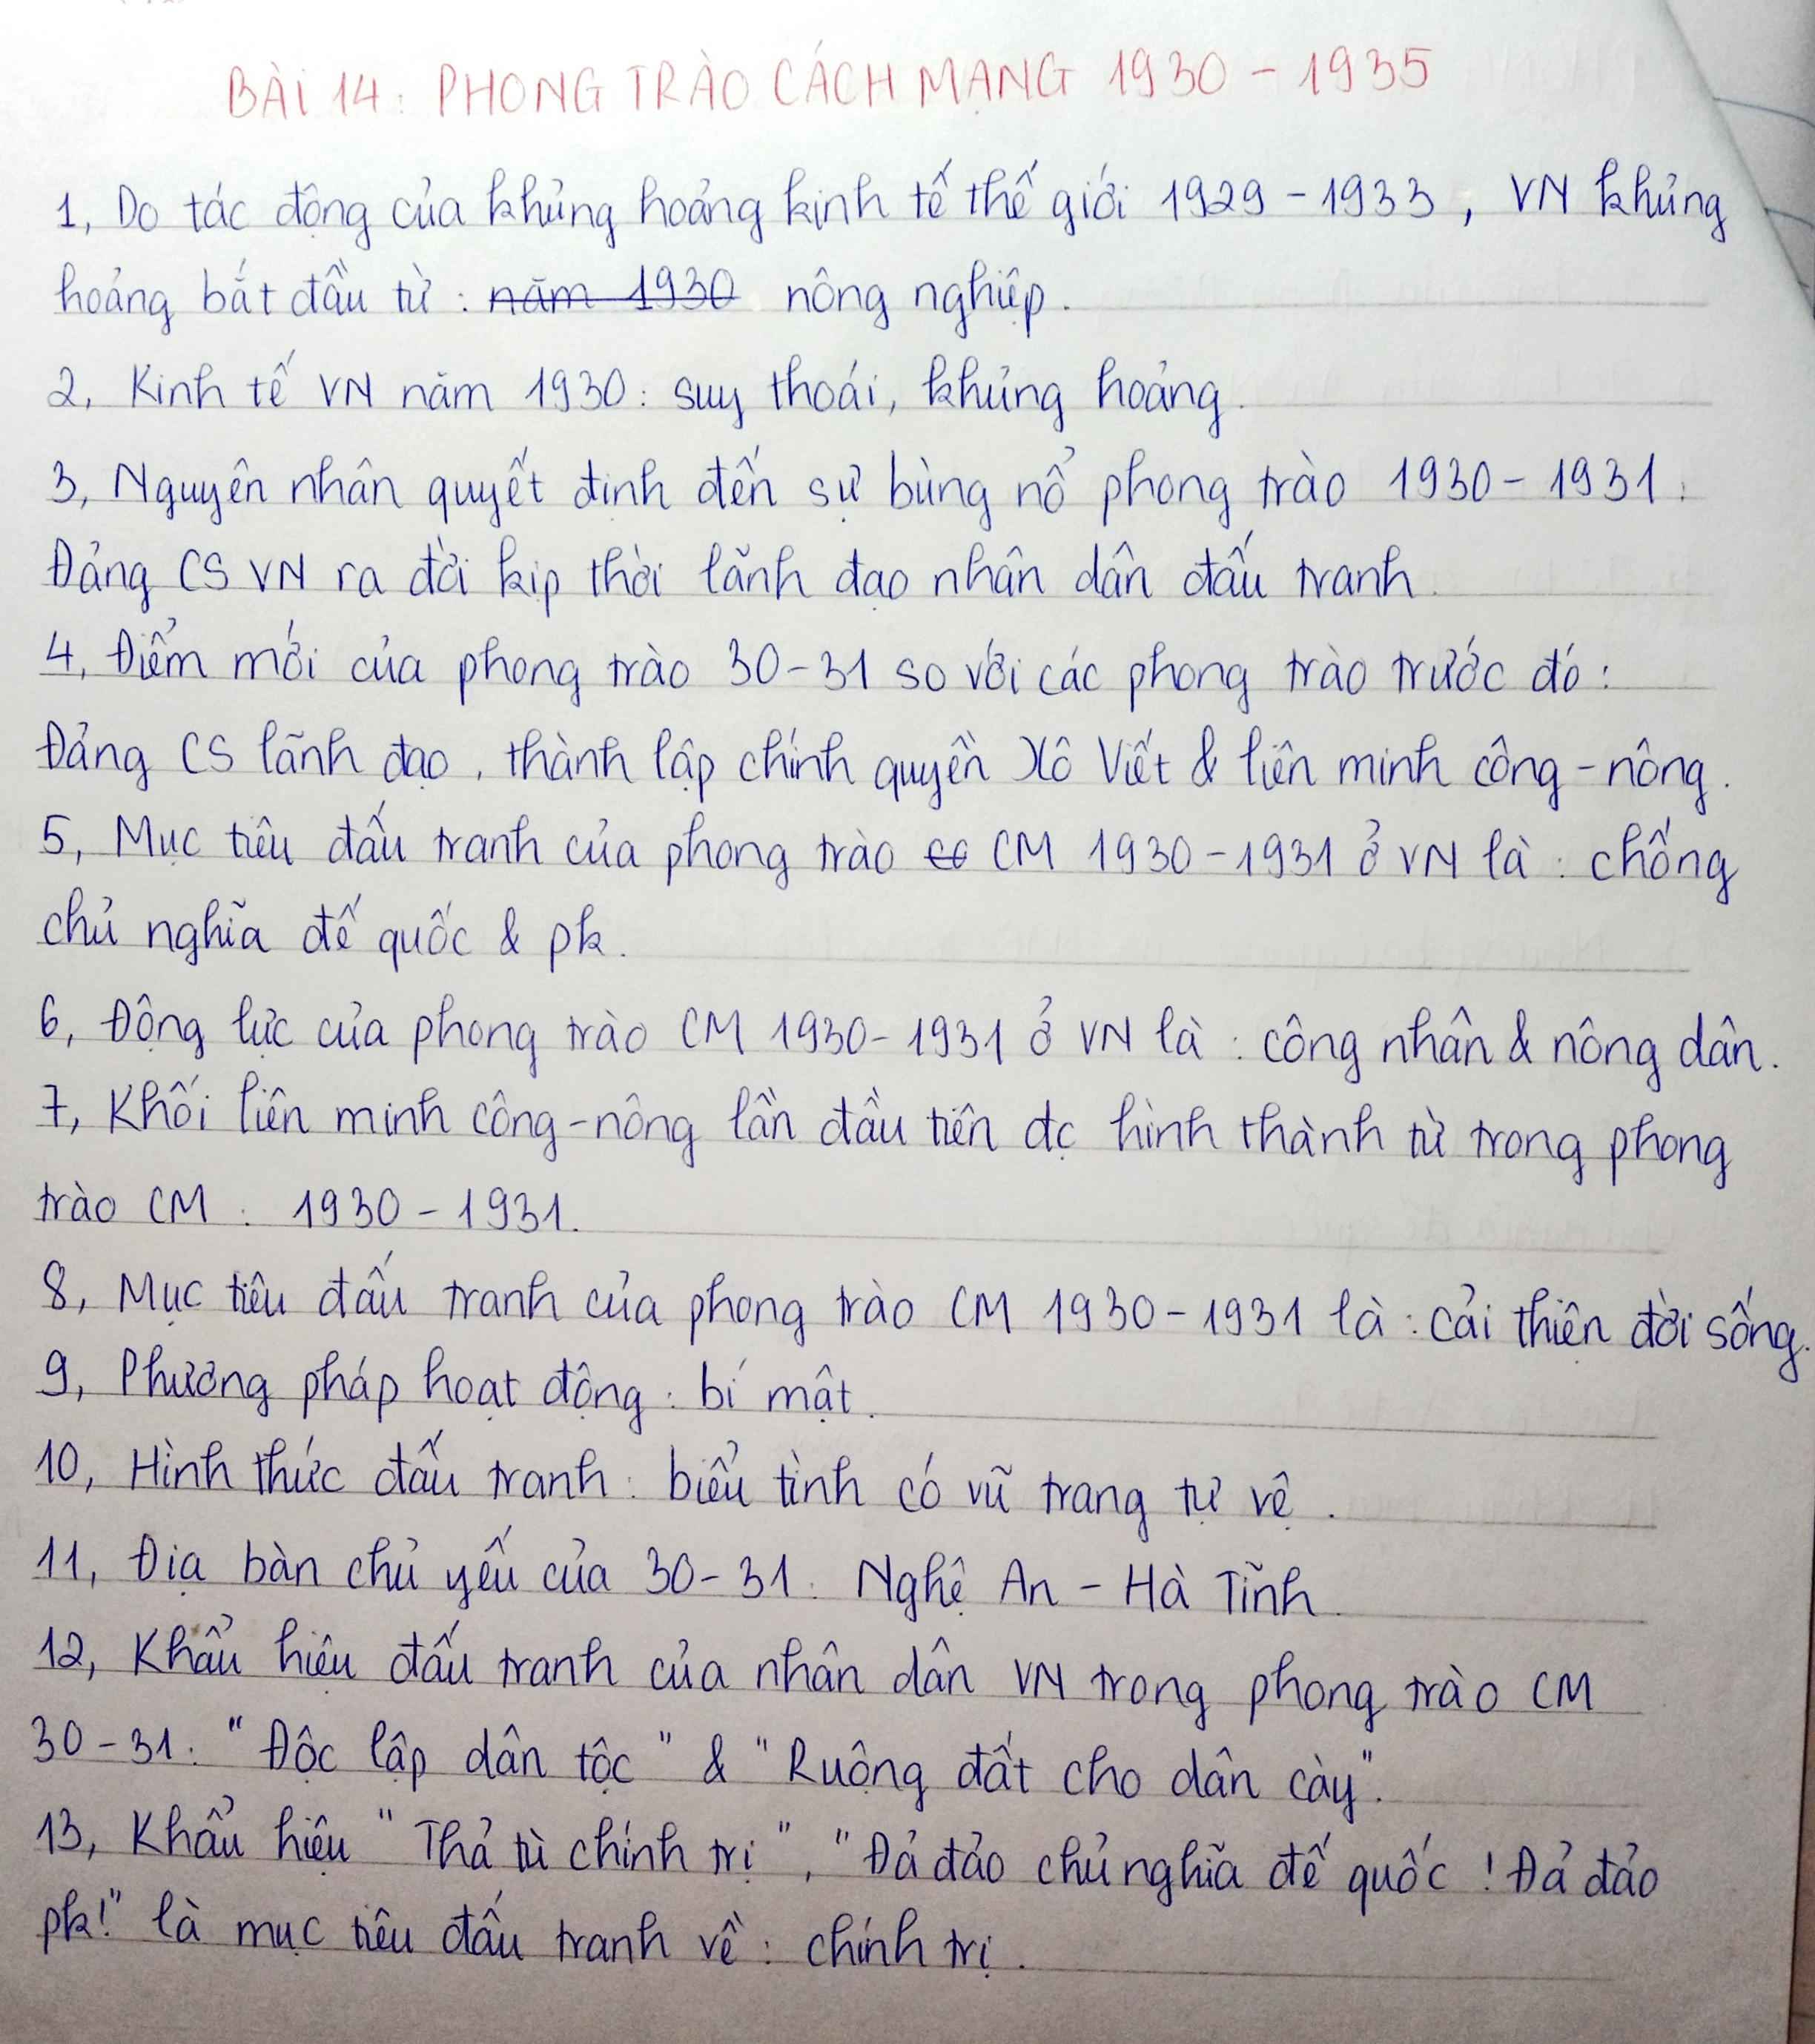 BÀI 14: PHONG TRÀO CÁCH MẠNG 1930 - 1935
1, Do tác động của khủng hoảng kinh tế thế giới 1929 - 1933, VN khủng
hoảng bắt đầu từ: năm 1930 nông nghiệp.
2, Kinh tế VN năm 1930: suy thoái, khủng hoảng.
3, Nguyên nhân quyết định đến sự bùng nổ phong trào 1930 - 1931:
Đảng CS VN ra đời kịp thời lãnh đạo nhân dân đấu tranh.
4, Điểm mới của phong trào 30-31 so với các phong trào trước đó:
Đảng CS lãnh đạo, thành lập chính quyền Xô Viết & liên minh công-nông.
5, Mục tiêu đấu tranh của phong trào CM 1930-1931 ở VN là: chống
chủ nghĩa đế quốc & pk.
6, Động lực của phong trào CM 1930-1931 ở VN là: công nhân & nông dân.
7, Khối liên minh công-nông lần đầu tiên đc hình thành từ trong phong
trào CM: 1930 - 1931.
8, Mục tiêu đấu tranh của phong trào CM 1930-1931 là: cải thiện đời sống.
9, Phương pháp hoạt động: bí mật.
10, Hình thức đấu tranh: biểu tình có vũ trang tự vệ.
11, Địa bàn chủ yếu của 30-31: Nghệ An - Hà Tĩnh.
12, Khẩu hiệu đấu tranh của nhân dân VN trong phong trào CM
30-31: "Độc lập dân tộc" & "Ruộng đất cho dân cày".
13, Khẩu hiệu "Thả tù chính trị", "Đả đảo chủ nghĩa đế quốc! Đả đảo
pk!" là mục tiêu đấu tranh về: chính trị.